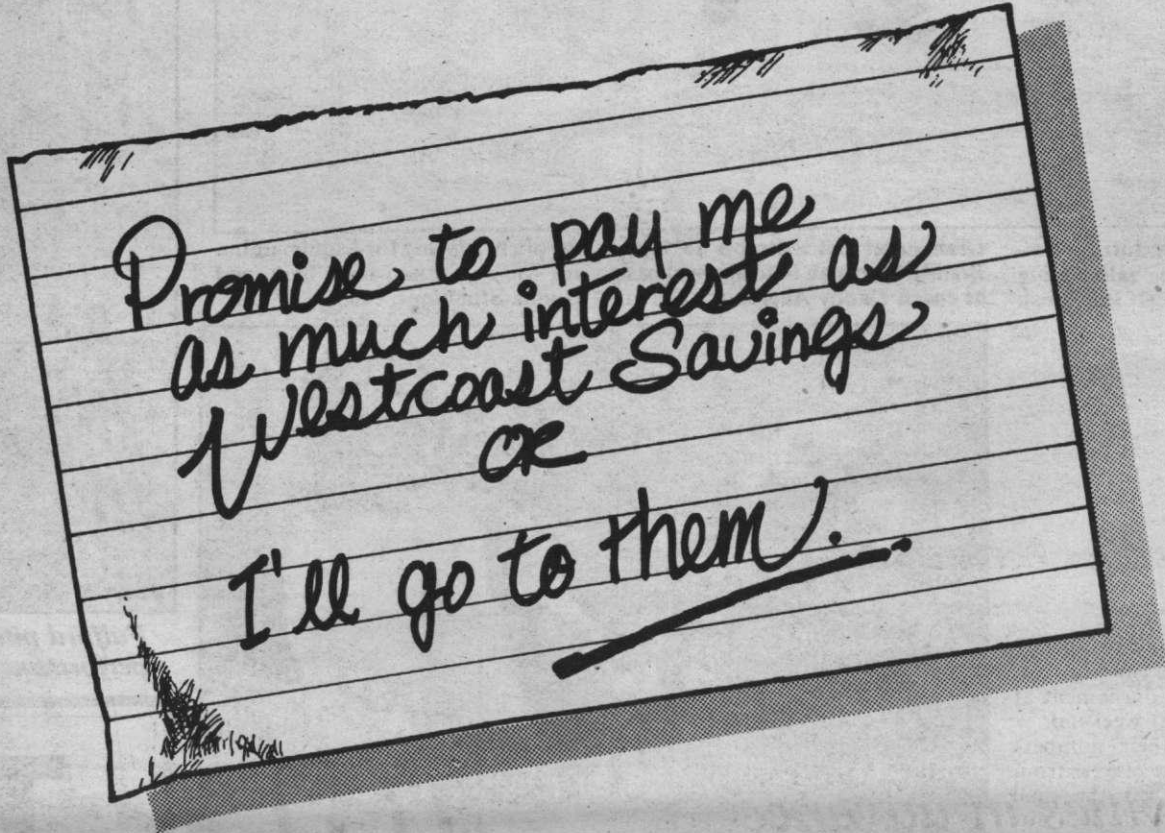 Promise to pay me
as much interest as
Westcoast Savings
OR
I'll go to them.